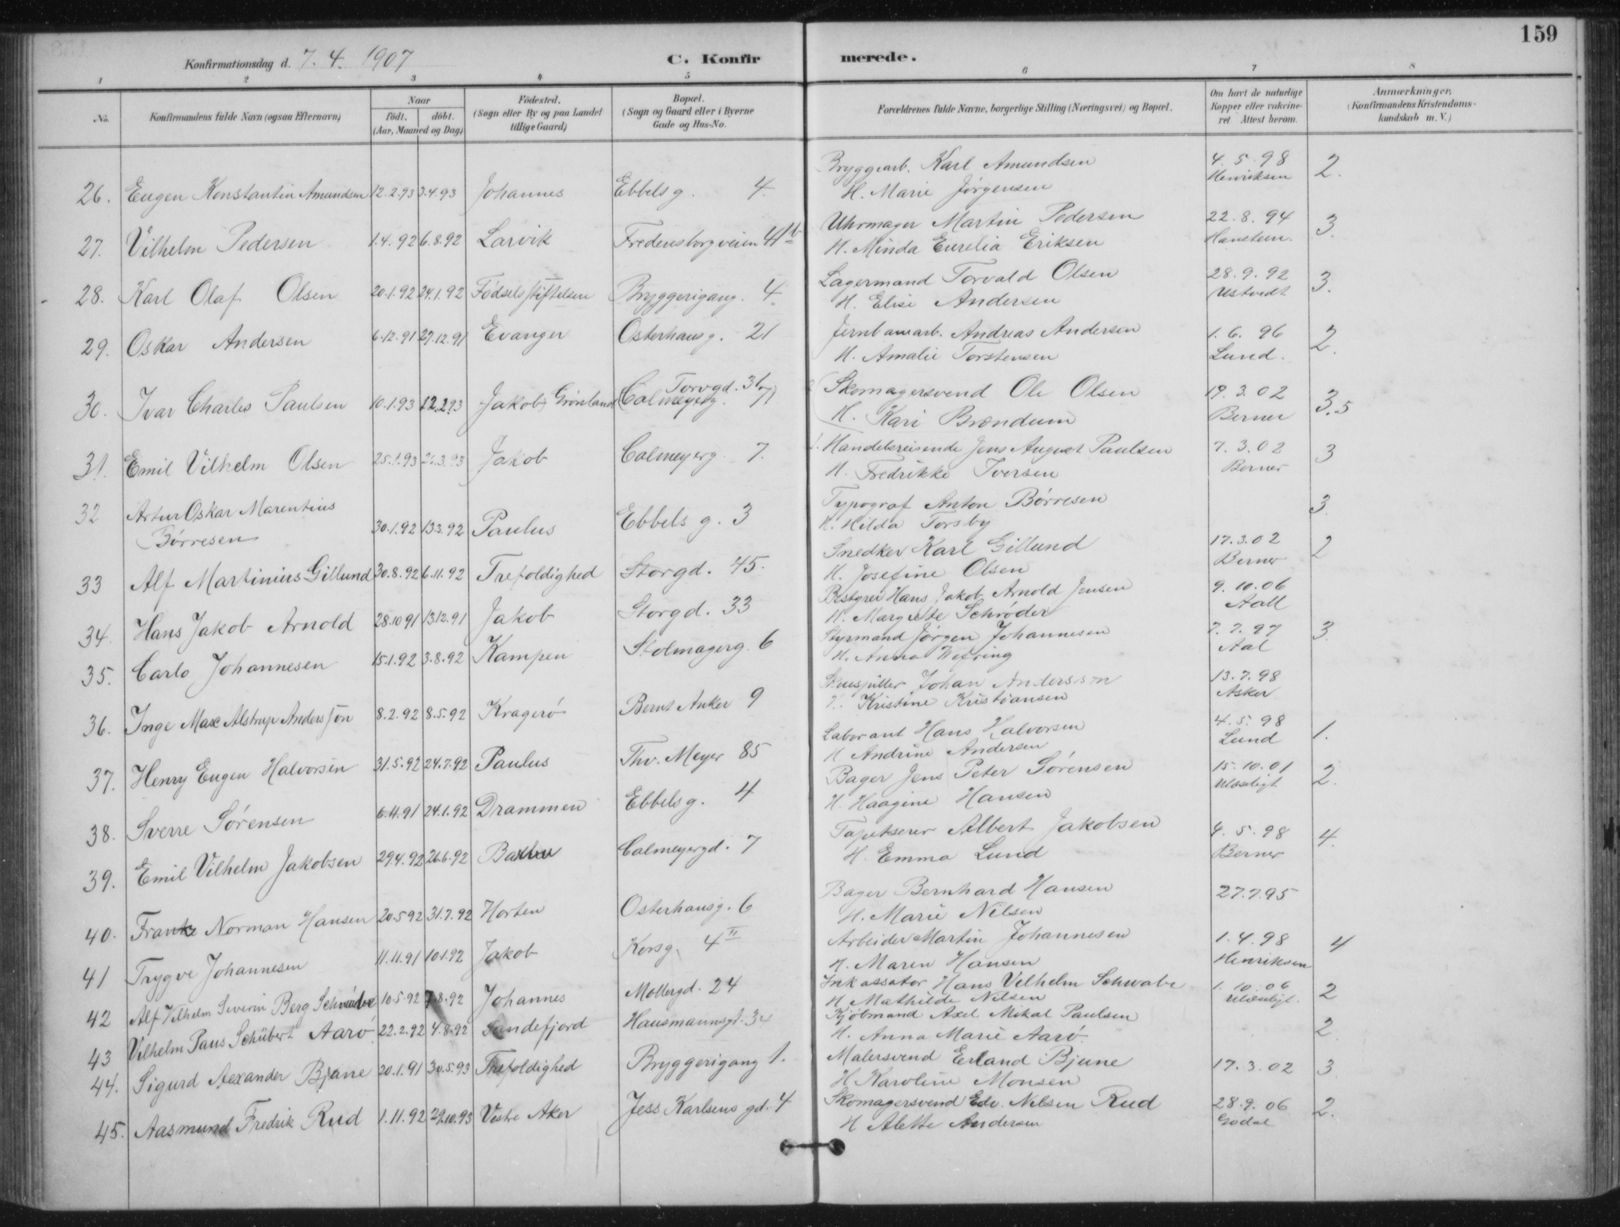 159
Konfirmationsdag d. 7. 4. 1907 C. Konfirmerede.
1 2 3 4 5 6 7 8
No. Konfirmandens fulde Navn (ogsaa Efternavn) Naar født. døbt. (Aar, Maaned og Dag) Fødested. (Sogn eller By og paa Landet tillige Gaard) Bopæl. (Sogn og Gaard eller i Byerne Gade og Hus-No. Forældrenes fulde Navne, borgerlige Stilling (Næringsvei) og Bopæl. Om havt de naturlige Kopper eller vaccineret Attest herom. Anmerkninger. (Konfirmandens Kristendomskundskab m. V.)
Bryggearb. Karl Amundsen 4. 5. 98
26. Eugen Konstantin Amundsen 12.2.93 3.4.93 Johannes Ebbels g. 4. H. Marie Jørgensen Henriksen 2.
Uhrmager Martin Pedersen 22.8.94
27. Vilhelm Pedersen 1.4.92 6.8.92 Larvik Fredensborgveien 41 b H. Minda Eurelia Eriksen Hansteen 3.
Lagermand Torvald Olsen 28.9.92
28. Karl Olaf Olsen 20.1.92 24.1.92 Fødselsstiftelsen Bryggerigang. 4. H. Elise Andersen Ustvedt 3.
Jernbanearb. Andreas Andersen 1.6.96
29. Oskar Andersen 6.12.91 27.12.91 Evanger Osterhausg. 21 H. Amalie Torstensen Lund. 2.
Torvgd. 31 Skomagersvend Ole Olsen 19.3.02
30. Ivar Charles Paulsen 10.1.93 12.2.93 Jakob Grønland Calmeyerg. 7 H. Kari Brændum Berner 3.5
Handelsreisende Jens August Paulsen 7.3.02
31. Emil Vilhelm Olsen 25.1.93 26.3.93 Jakob Calmeyerg. 7. H. Fredrikke Iversen Berner 3
32 Artur Oskar Marentius Typograf Anton Børresen 3.
Børresen 30.1.92 13.3.92 Paulus Ebbels g. 3 H. Hilda Torsby
Snedker Karl Gillund 17.3.02 2
33 Alf Martinius Gillund 30.8.92 6.11.92 Trefoldighed Storgd. 45. H. Josefine Olsen Berner
Bestyrer Hans Jakob Arnold Jensen 9.10.06
34. Hans Jakob Arnold 28.10.91 13.12.91 Jakob Storgd. 33 H. Margrethe Schrøder Aall
Styrmand Jørgen Johannesen 7.7.97 3.
35. Carlo Johannesen 15.1.92 3.8.92 Kampen Stolmagerg. 6 H. Anna Aal
Johan Andersson 13.7.98
36. Inge Max Alstrup Andersson 8.2.92 8.5.92 Kragerø Bernt Anker 9 H. Kristine Kristiansen Asker
Laborant Hans Halvorsen 4.5.98
37. Henry Eugen Halvorsen 31.5.92 24.7.92 Paulus Thv. Meyer 85 H Andrine Andersen Lund 1.
Bager Jens Peter Sørensen 15.10.01
38. Sverre Sørensen 6.11.91 24.1.92 Drammen Ebbelsg. 4 H. Haagine Hansen Ulæseligt 2.
Tapetserer Albert Jakobsen 4.5.98
39. Emil Vilhelm Jakobsen 29.4.92 26.6.92 Calmeyergd. 7 H. Emma Lund Berner 4.
Bager Bernhard Hansen 27.7.95
40. Frank Norman Hansen 20.5.92 31.7.92 Horten Osterhausg. 6 H. Marie Nilsen
Arbeider Martin Johannesen 1.4.98
41 Trygve Johannesen 11.11.91 10.1.92 Jakob Korsg. 4 II H. Maren Hansen Henriksen 4
Inkassator Hans Vilhelm Schwabe 1.10.06
42 Alf Vilhelm Severin Berg Schwabe 10.5.92 7.8.92 Johannes Møllergd. 24 H Mathilde Nilsen ulæseligt. 2
Kjøbmand Axel Mikal Paulsen
43 Vilhelm Paus Schübert Aarø 22.2.92 4.8.92 Sandefjord Hausmannsgt. 34 H. Anna Marie Aarø 2.
Malersvend Erland Bjune 17.3.02
44. Sigurd Alexander Bjune 20.1.91 30.5.93 Trefoldighed Bryggerigang 1. H Karoline Monsen 3
Skomagersvend Edv. Nilsen Rud 28.9.06
45. Aasmund Fredrik Rud 1.11.92 29.10.93 Vestre Aker Jess Karlsens gd. 4 H Alette Andersen Godal 2.